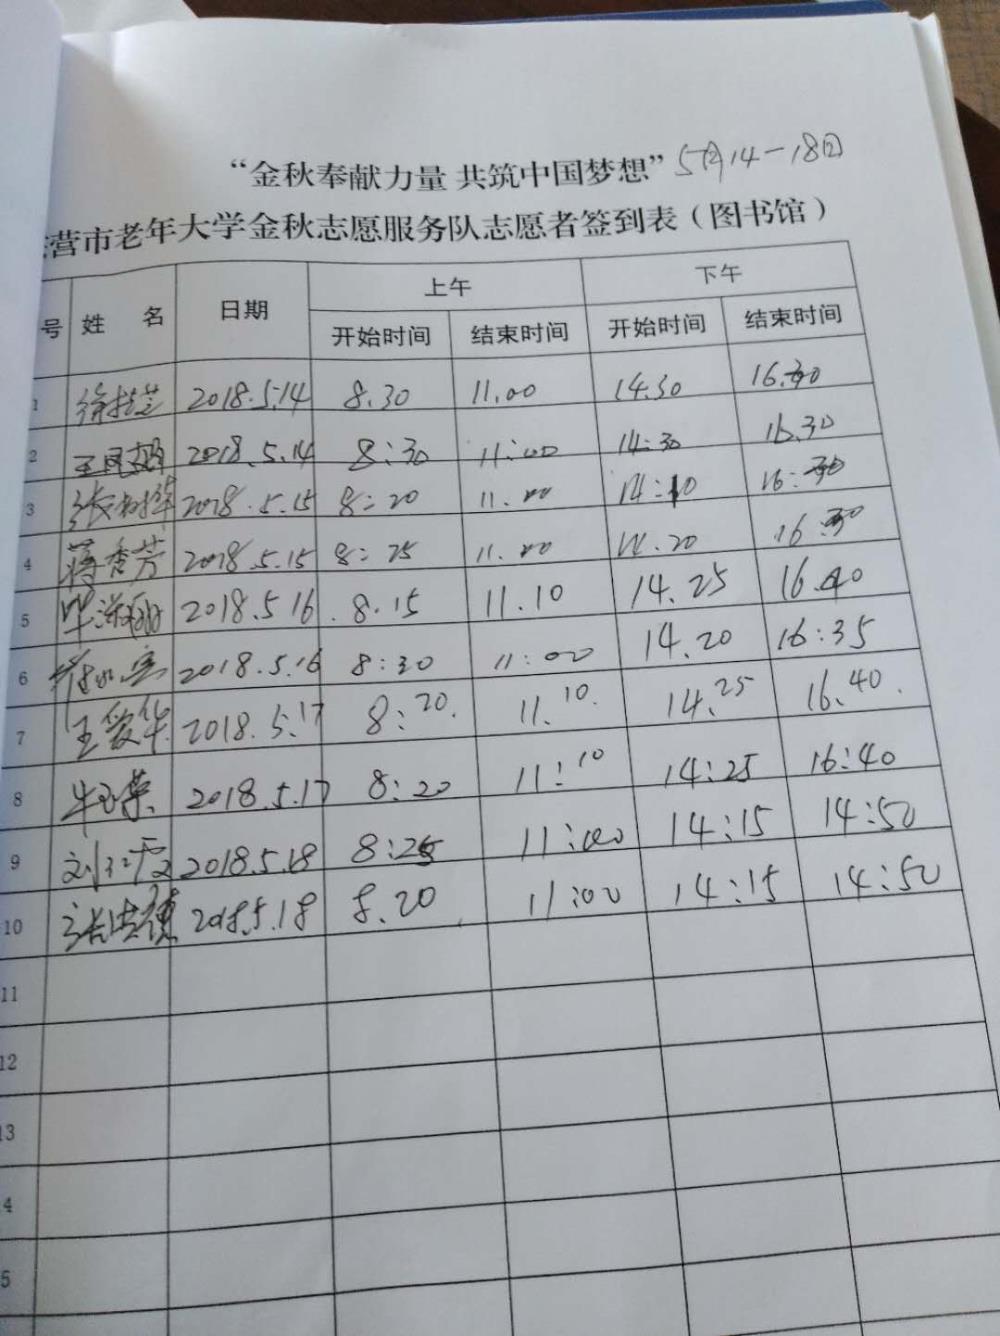 “金秋奉献力量 共筑中国梦想” 5月14-18日
营市老年大学金秋志愿服务队志愿者签到表（图书馆）
号 姓 名 日期 上午 下午
开始时间 结束时间 开始时间 结束时间
1 2018.5.14 8.30 11.00 14.30
2 2018.5.14 8:30 11:00 14:30 16.30
3 2018.5.15 8:20 11.00 14:10 16:30
4 蒋秀芳 2018.5.15 8:25 11.00 14.20 16.30
5 2018.5.16 8.15 11.10 14.25 16.40
6 2018.5.16 8:30 11:00 14.20 16:35
7 王爱华 2018.5.17 8:20. 11.10. 14.25 16.40.
8 牛玉荣 2018.5.17 8:20 11:10 14:25 16:40
9 刘红霞 2018.5.18 8:25 11:00 14:15 14:50
10 2018.5.18 8.20 11:00 14:15 14:50
11
12
13
4
5